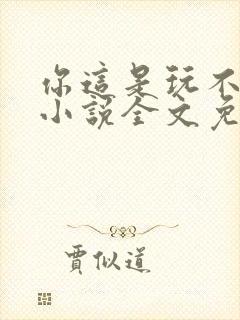 你這是玩不
小說全文免
賈似道